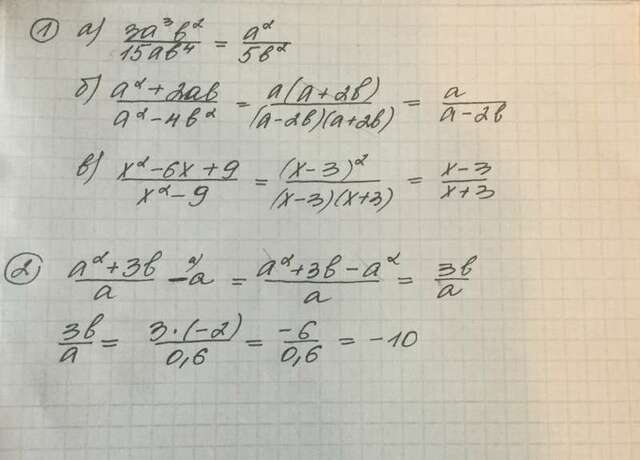 ① а) 3a³b²/15ab⁴ = a²/5b²
б) a²+2ab/a²-4b² = a(a+2b)/(a-2b)(a+2b) = a/a-2b
в) x²-6x+9/x²-9 = (x-3)²/(x-3)(x+3) = x-3/x+3
② a²+3b/a - a⁾a = a²+3b-a²/a = 3b/a
3b/a = 3·(-2)/0,6 = -6/0,6 = -10